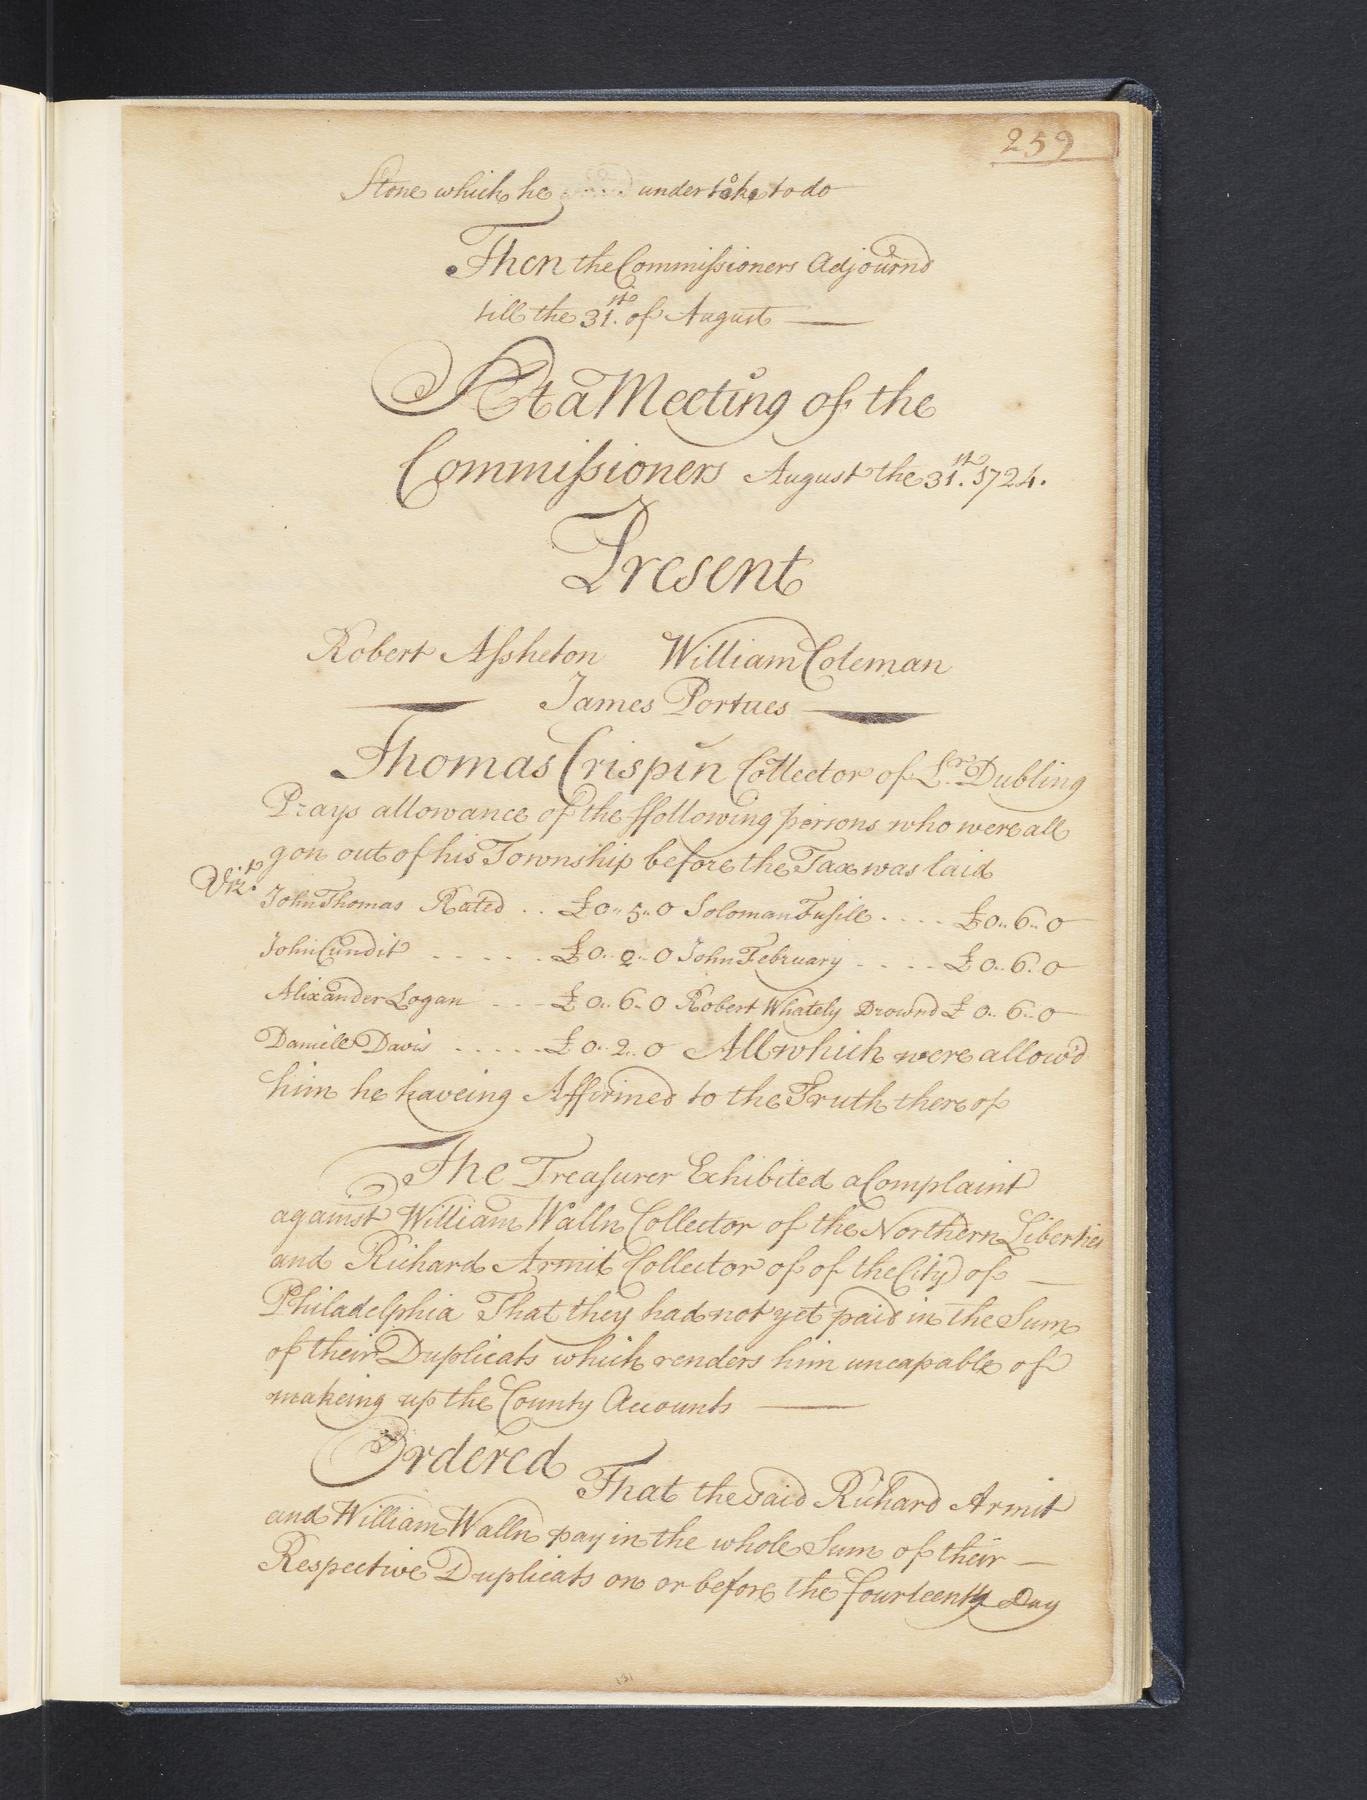 259
Stone which he undertoke to do
Then the Commissioners Adjournd
till the 31st. of August
At a Meeting of the
Commissioners August the 31st. 1724.
Present
Robert Assheton William Coleman
James Portues
Thomas Crispin Collector of Lr. Dubling
Prays allowance of the ffollowing persons who were all
gon out of his Township before the Tax was laid
Vizt.
John Thomas Rated .. £0..5..0 Soloman Fusill .... £0..6..0
John Cundit ..... £0..2..0 John February .... £0..6..0
Alixander Logan ... £0..6..0 Robert Whately Drownd £0..6..0
Daniell Davis ..... £0..2..0 All which were allow'd
him he haveing Affirmed to the Truth thereof
The Treasurer Exhibited a Complaint
against William Walln Collector of the Northern Liberties
and Richard Armit Collector of of the City of
Philadelphia That they had not yet paid in the Sum
of their Duplicats which renders him uncapable of
makeing up the County Accounts
Ordered That the said Richard Armit
and William Walln pay in the whole Sum of their
Respective Duplicats on or before the fourteenth Day
131